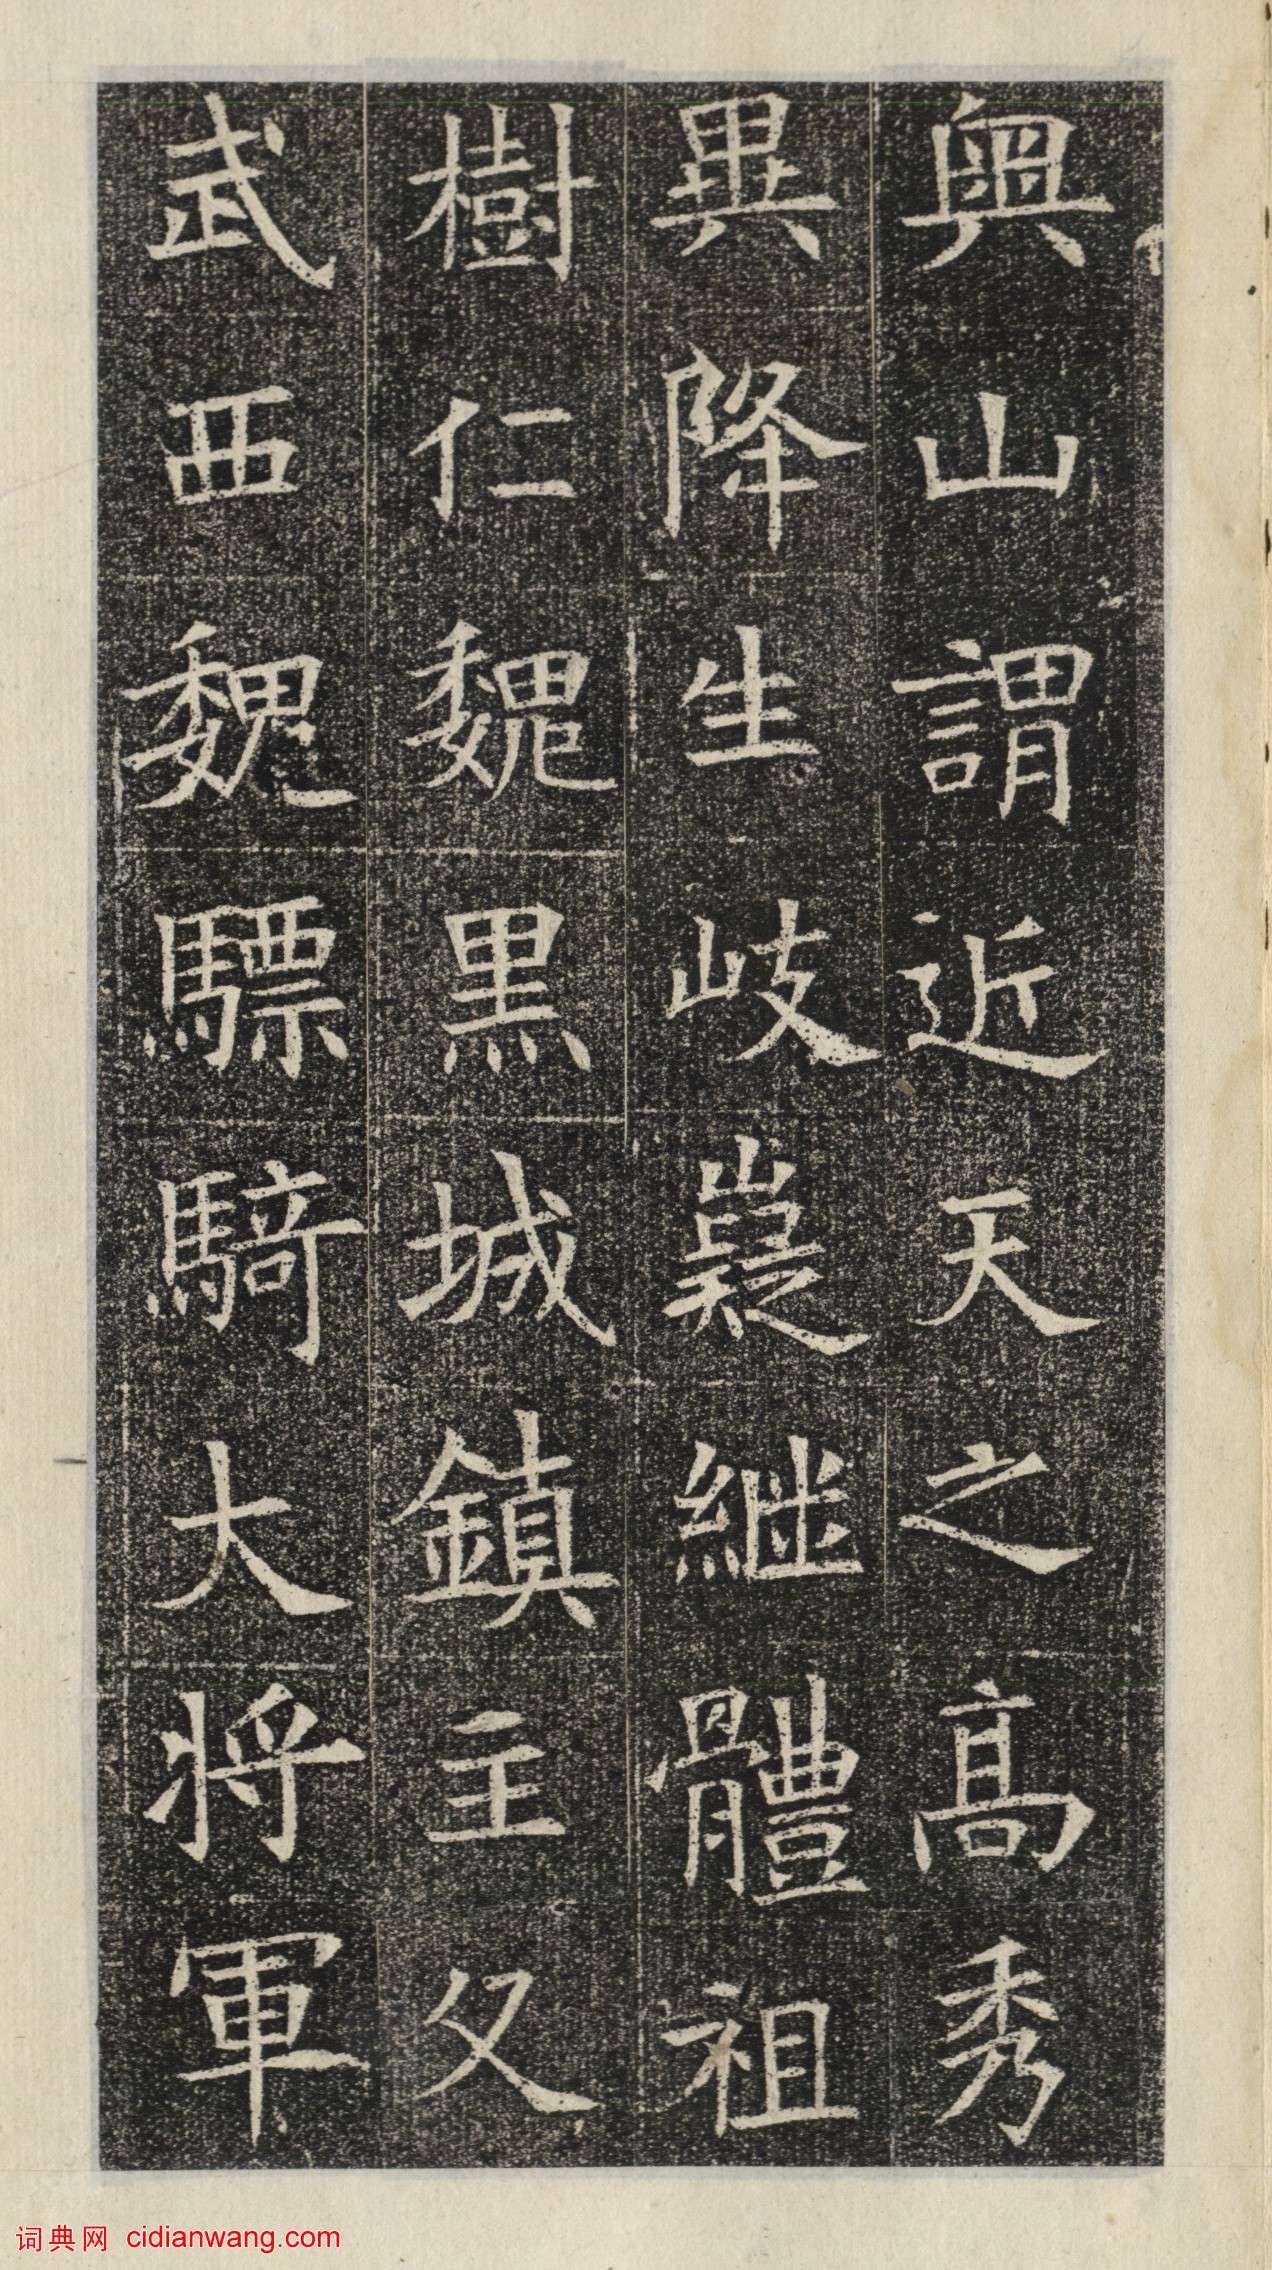 輿山謂近天之高秀
異降生岐嶷継體祖
樹仁魏黑城鎮主父
武西魏驃騎大将軍
词典网 cidianwang.com